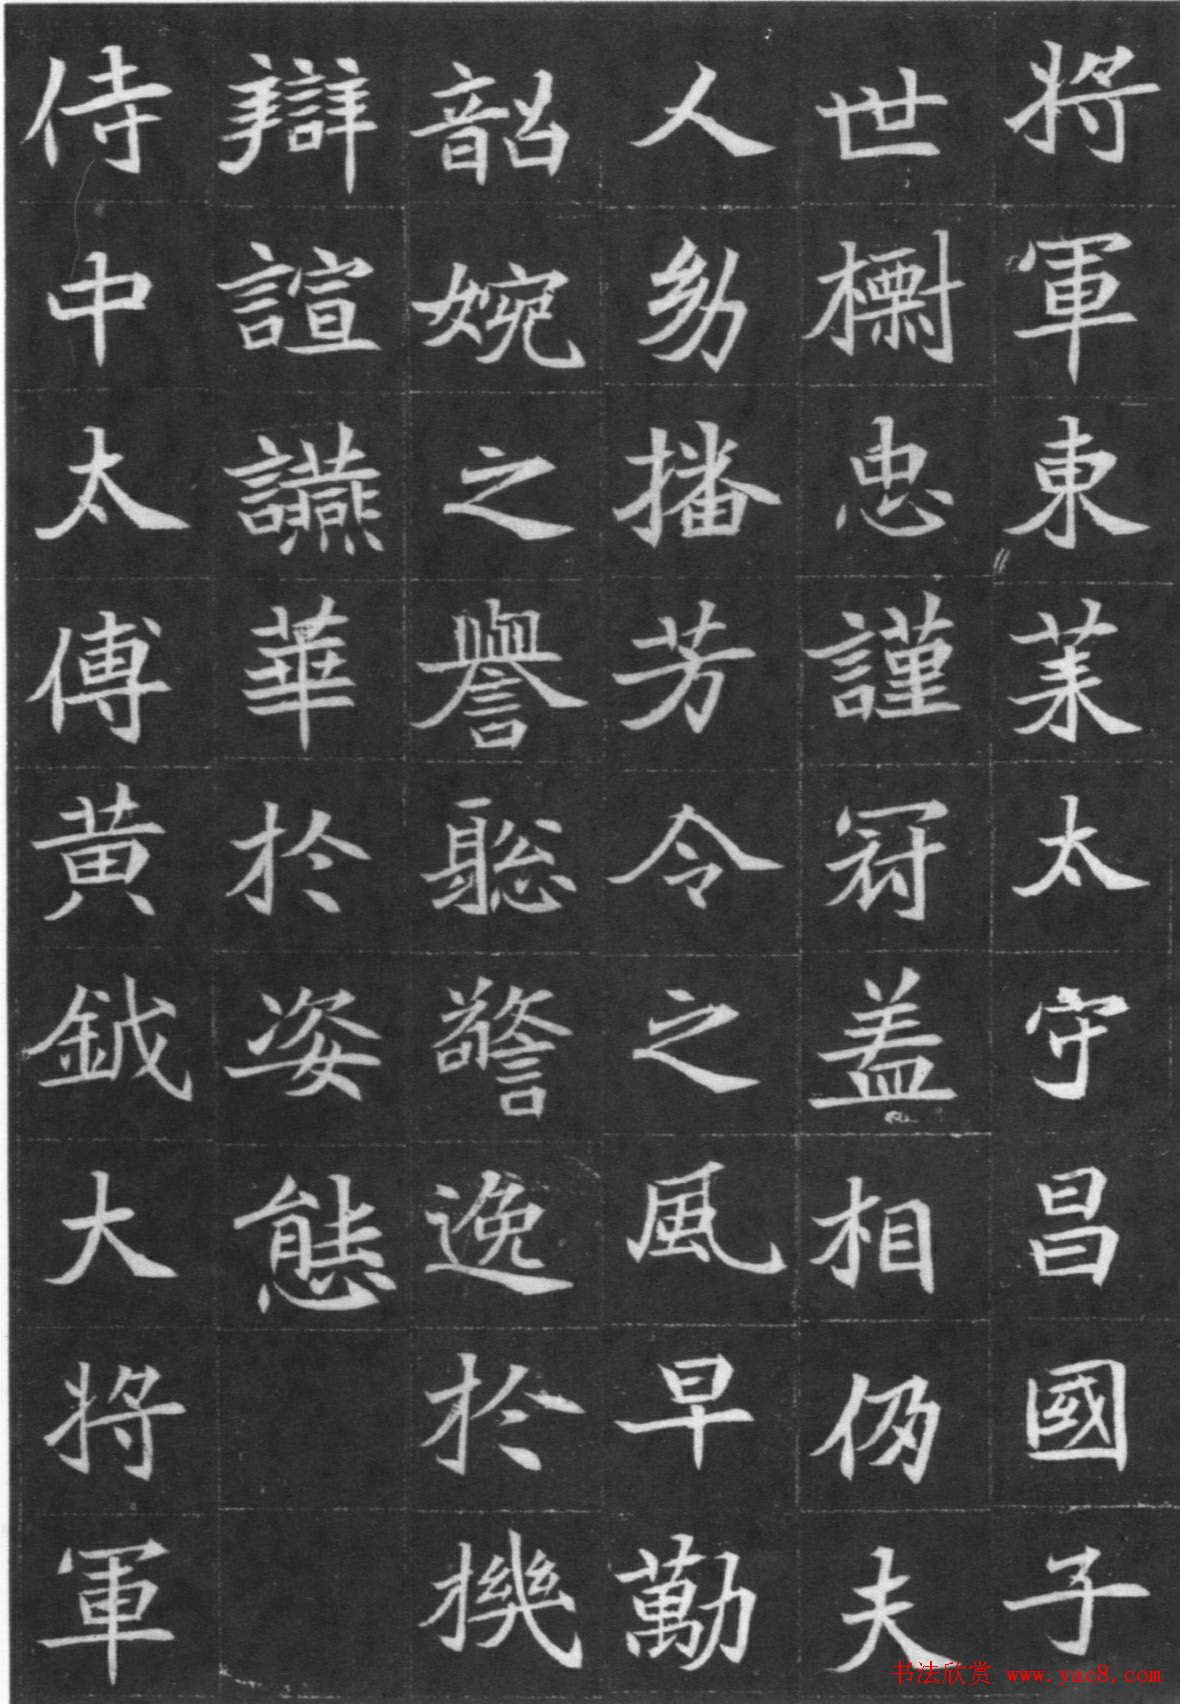 將軍東萊太守昌國子
世樹忠謹冠盖相仍夫
人幼播芳令之風早勱
韶婉之譽聡警逸於機
辯諠讌華於姿態
侍中太傅黄鉞大將軍
书法欣赏 www.yac8.com